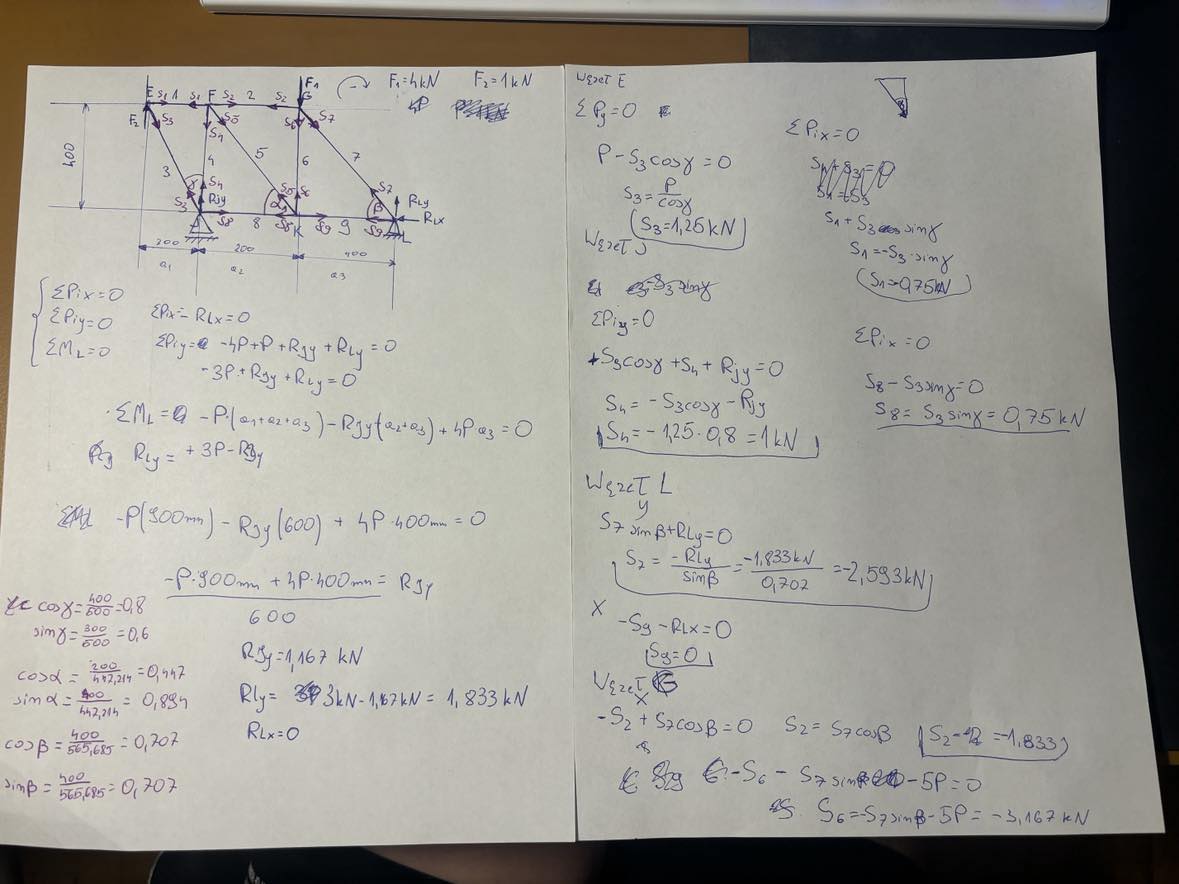 F₁ F₁=4kN F₂=1kN
E S₁ 1 S₁ F S₂ 2 S₂ G
F₂ S₃ S₄ S₅ S₆ S₇
400 3 4 5 6 7
γ S₄ S₅ S₆ S₇ RLy
S₃ Rjy α β RLx
S₈ 8 S₈ K S₉ 9 S₉ L
200 200 400
a₁ a₂ a₃
ΣPix=0
ΣPiy=0
ΣML=0
ΣPix= - RLx=0
ΣPiy= -4P+P+Rjy+RLy=0
-3P+Rjy+RLy=0
ΣML= -P·(a₁+a₂+a₃)-Rjy(a₂+a₃)+4P·a₃=0
RLy= +3P-Rjy
-P(900mm)-Rjy(600)+4P·400mm=0
-P·900mm+4P·400mm = Rjy
600
cosγ=400/500=0,8
sinγ=300/500=0,6
cosα=200/447,214=0,447
sinα=400/447,214=0,894
cosβ=400/565,685=0,707
sinβ=400/565,685=0,707
Rjy=1,167 kN
RLy= 3kN-1,167kN=1,833kN
RLx=0
Węzeł E
ΣPy=0
P-S₃cosγ=0
S₃=P/cosγ
S₃=1,25kN
ΣPix=0
S₁+S₃ sinγ
S₁=-S₃·sinγ
S₁=0,75kN
Węzeł J
ΣPiy=0
+S₃cosγ+S₄+Rjy=0
S₄=-S₃cosγ-Rjy
S₄=-1,25·0,8=1kN
ΣPix=0
S₈-S₃sinγ=0
S₈=S₃sinγ=0,75kN
Węzeł L
y
S₇sinβ+RLy=0
S₇=-RLy/sinβ=-1,833kN/0,707=-2,593kN
x
-S₉-RLx=0
S₉=0
Węzeł G
x
-S₂+S₇cosβ=0 S₂=S₇cosβ S₂=-1,833
-S₆-S₇sinβ-5P=0
S₆=-S₇sinβ-5P=-3,167kN